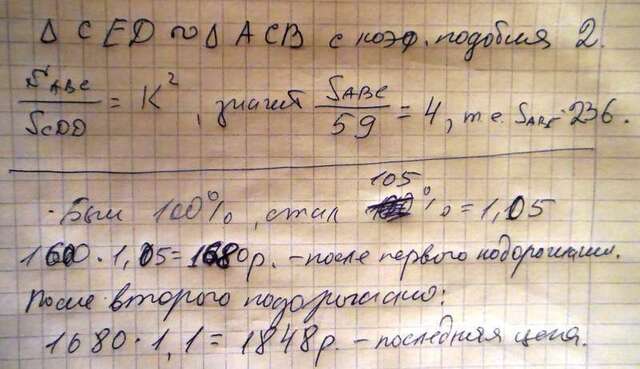 Δ CED ~ Δ ACB с коэф. подобия 2.
S ABC / S CDD = K², значит S ABC / 59 = 4, т.е. S ABC = 236.
Был 100%, стал 105% = 1,05
1600 · 1,05 = 1680 р. – после первого подорожания.
После второго подорожано:
1680 · 1,1 = 1848 р. – последняя цена.